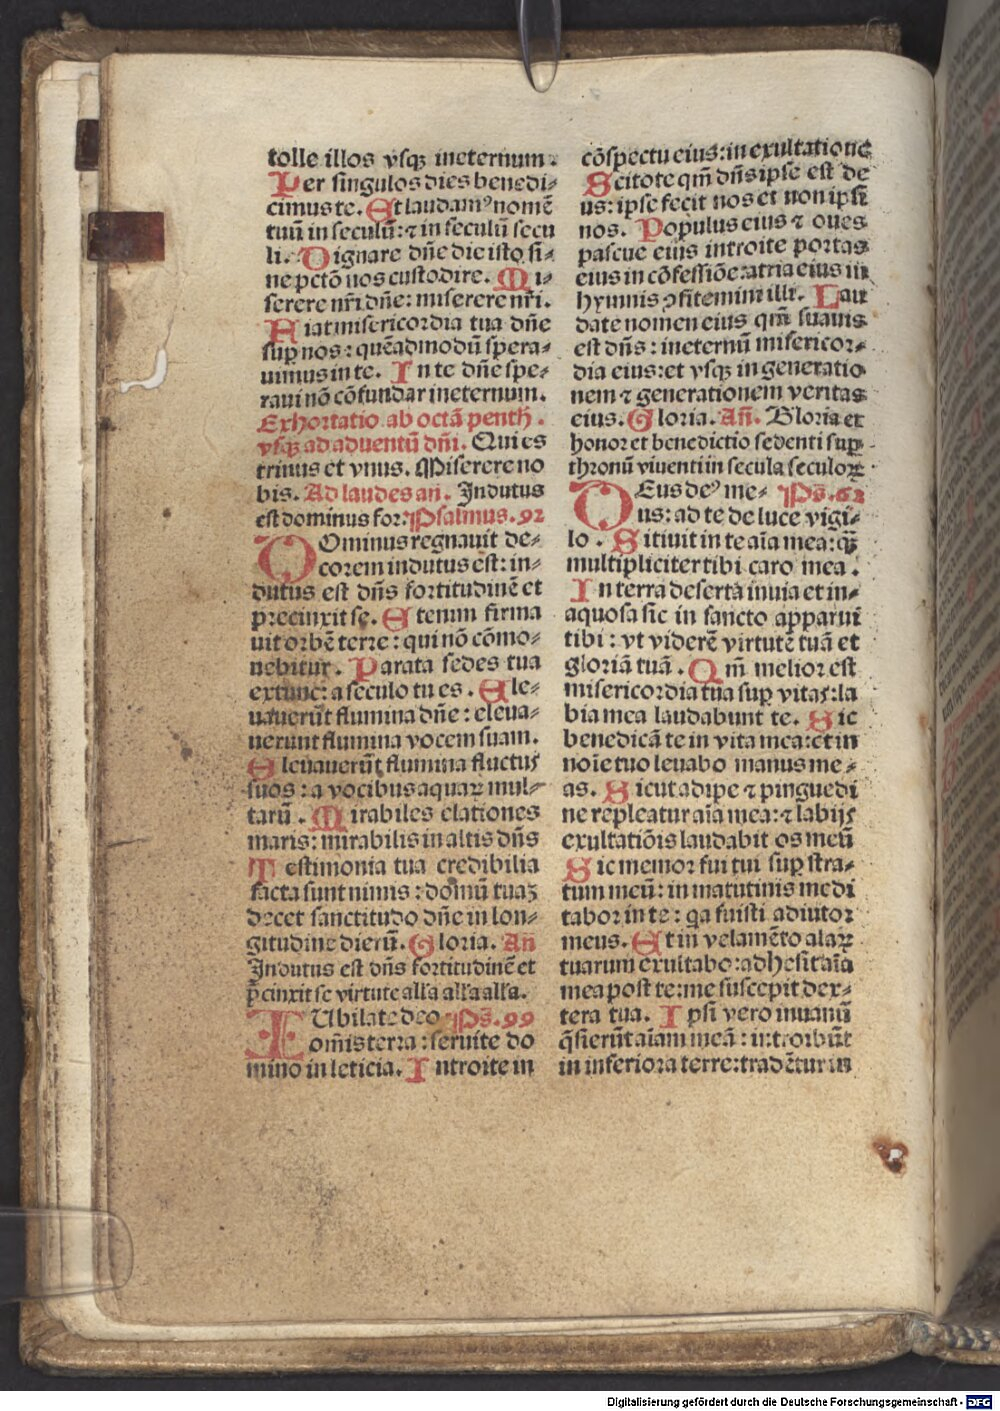 tolle illos vsqꝫ ineternum.
Per singulos dies benedi⸗
cimus te. Et laudamꝰ nomē
tuū in seculū: ⁊ in seculū secu
li. Dignare dn̄e die isto si⸗
ne pctō nos custodire. Mi⸗
serere nr̄i dn̄e: miserere nr̄i.
Fiat misericordia tua dn̄e
suꝑ nos: quēadmodū spera⸗
uimus in te. In te dn̄e spe⸗
raui nō cōfundar ineternum.
Exhortatio ab octā penth.
vsqꝫ ad aduentū dn̄i. Qui es
trinus et vnus. Miserere no
bis. Ad laudes an̄. Indutus
est dominus for. Psalmus. 92
DOminus regnauit de⸗
corem indutus est: in⸗
dutus est dn̄s fortitudinē et
precinxit se. Etenim firma
uit orbē terre: qui nō cōmo⸗
uebitur. Parata sedes tua
extunc: a seculo tu es. Ele⸗
uauerūt flumina dn̄e: eleua⸗
uerunt flumina vocem suam.
Eleuauerūt flumina fluctus
suos: a vocibus aquaꝝ mul⸗
tarū. Mirabiles elationes
maris: mirabilis in altis dn̄s
Testimonia tua credibilia
facta sunt nimis: domū tuaꝫ
decet sanctitudo dn̄e in lon⸗
gitudine dierū. Gloria. An̄
Indutus est dn̄s fortitudinē et
p̄cinxit se virtute all'a all'a all'a.
IUbilate deo Ps̄. 99
om̄is terra: seruite do
mino in leticia. Introite in
cōspectu eius: in exultatione
Scitote qm̄ dn̄s ipse est de
us: ipse fecit nos et non ipsi
nos. Populus eius ⁊ oues
pascue eius introite portas
eius in cōfessiōe: atria eius in
hymnis ꝯfitemini illi. Lau
date nomen eius qm̄ suauis
est dn̄s: ineternū misericor⸗
dia eius: et vsqꝫ in generatio
nem ⁊ generationem veritas
eius. Gloria. An̄. Gloria et
honor et benedictio sedenti suꝑ
thronū viuenti in secula seculoꝝ
DEus deꝰ me⸗ Ps̄. 62
us: ad te de luce vigi⸗
lo. Sitiuit in te aīa mea: qꝫ
multipliciter tibi caro mea.
In terra deserta inuia et in⸗
aquosa sic in sancto apparui
tibi: vt viderē virtutē tuā et
gloriā tuā. Qm̄ melior est
misericordia tua suꝑ vitas: la
bia mea laudabunt te. Sic
benedicā te in vita mea: et in
noīe tuo leuabo manus me⸗
as. Sicut adipe ⁊ pinguedi
ne repleatur aīa mea: ⁊ labijs
exultatiōis laudabit os meū
Sic memor fui tui suꝑ stra⸗
tum meū: in matutinis medi
tabor in te: qa fuisti adiutor
meus. Et in velamēto alaꝝ
tuarum exultabo: adhesit aīa
mea post te: me suscepit dex⸗
tera tua. Ipsi vero inuanū
q̄sierūt aīam meā: introibūt
in inferiora terre: tradētur in
Digitalisierung gefördert durch die Deutsche Forschungsgemeinschaft - DFG